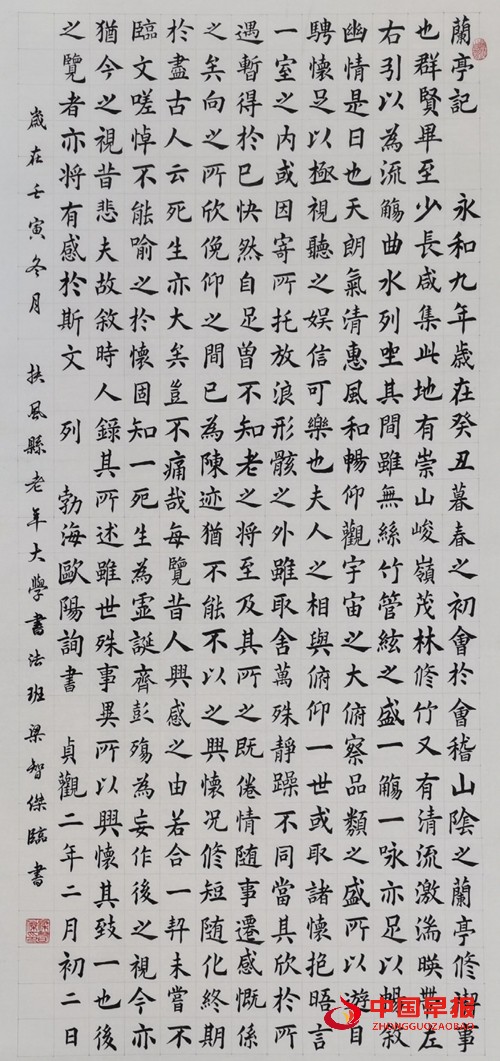 蘭亭記　永和九年歲在癸丑暮春之初會於會稽山陰之蘭亭修禊事
也群賢畢至少長咸集此地有崇山峻嶺茂林修竹又有清流激湍暎帶左
右引以為流觴曲水列坐其間雖無絲竹管絃之盛一觴一咏亦足以暢敘
幽情是日也天朗氣清惠風和暢仰觀宇宙之大俯察品類之盛所以遊目
騁懷足以極視聽之娛信可樂也夫人之相與俯仰一世或取諸懷抱晤言
一室之內或因寄所托放浪形骸之外雖取舍萬殊靜躁不同當其欣於所
遇暫得於己快然自足曾不知老之將至及其所之既倦情隨事遷感慨係
之矣向之所欣俛仰之間已為陳迹猶不能不以之興懷況修短隨化終期
於盡古人云死生亦大矣豈不痛哉每覽昔人興感之由若合一契未嘗不
臨文嗟悼不能喻之於懷固知一死生為虛誕齊彭殤為妄作後之視今亦
猶今之視昔悲夫故敘時人錄其所述雖世殊事異所以興懷其致一也後
之覽者亦將有感於斯文　列　勃海歐陽詢書　貞觀二年二月初二日
歲在壬寅冬月　扶風縣老年大學書法班梁智傑臨書
中国早报
ZHONGGUOZAOBAO